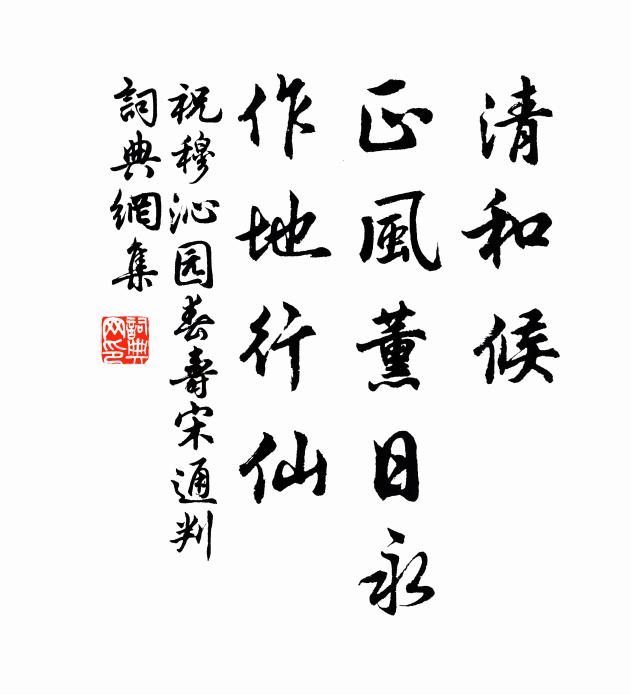 清和候
正風薰日永
作地行仙
祝穆沁园春壽宋通判
詞典網集
詞典
网印